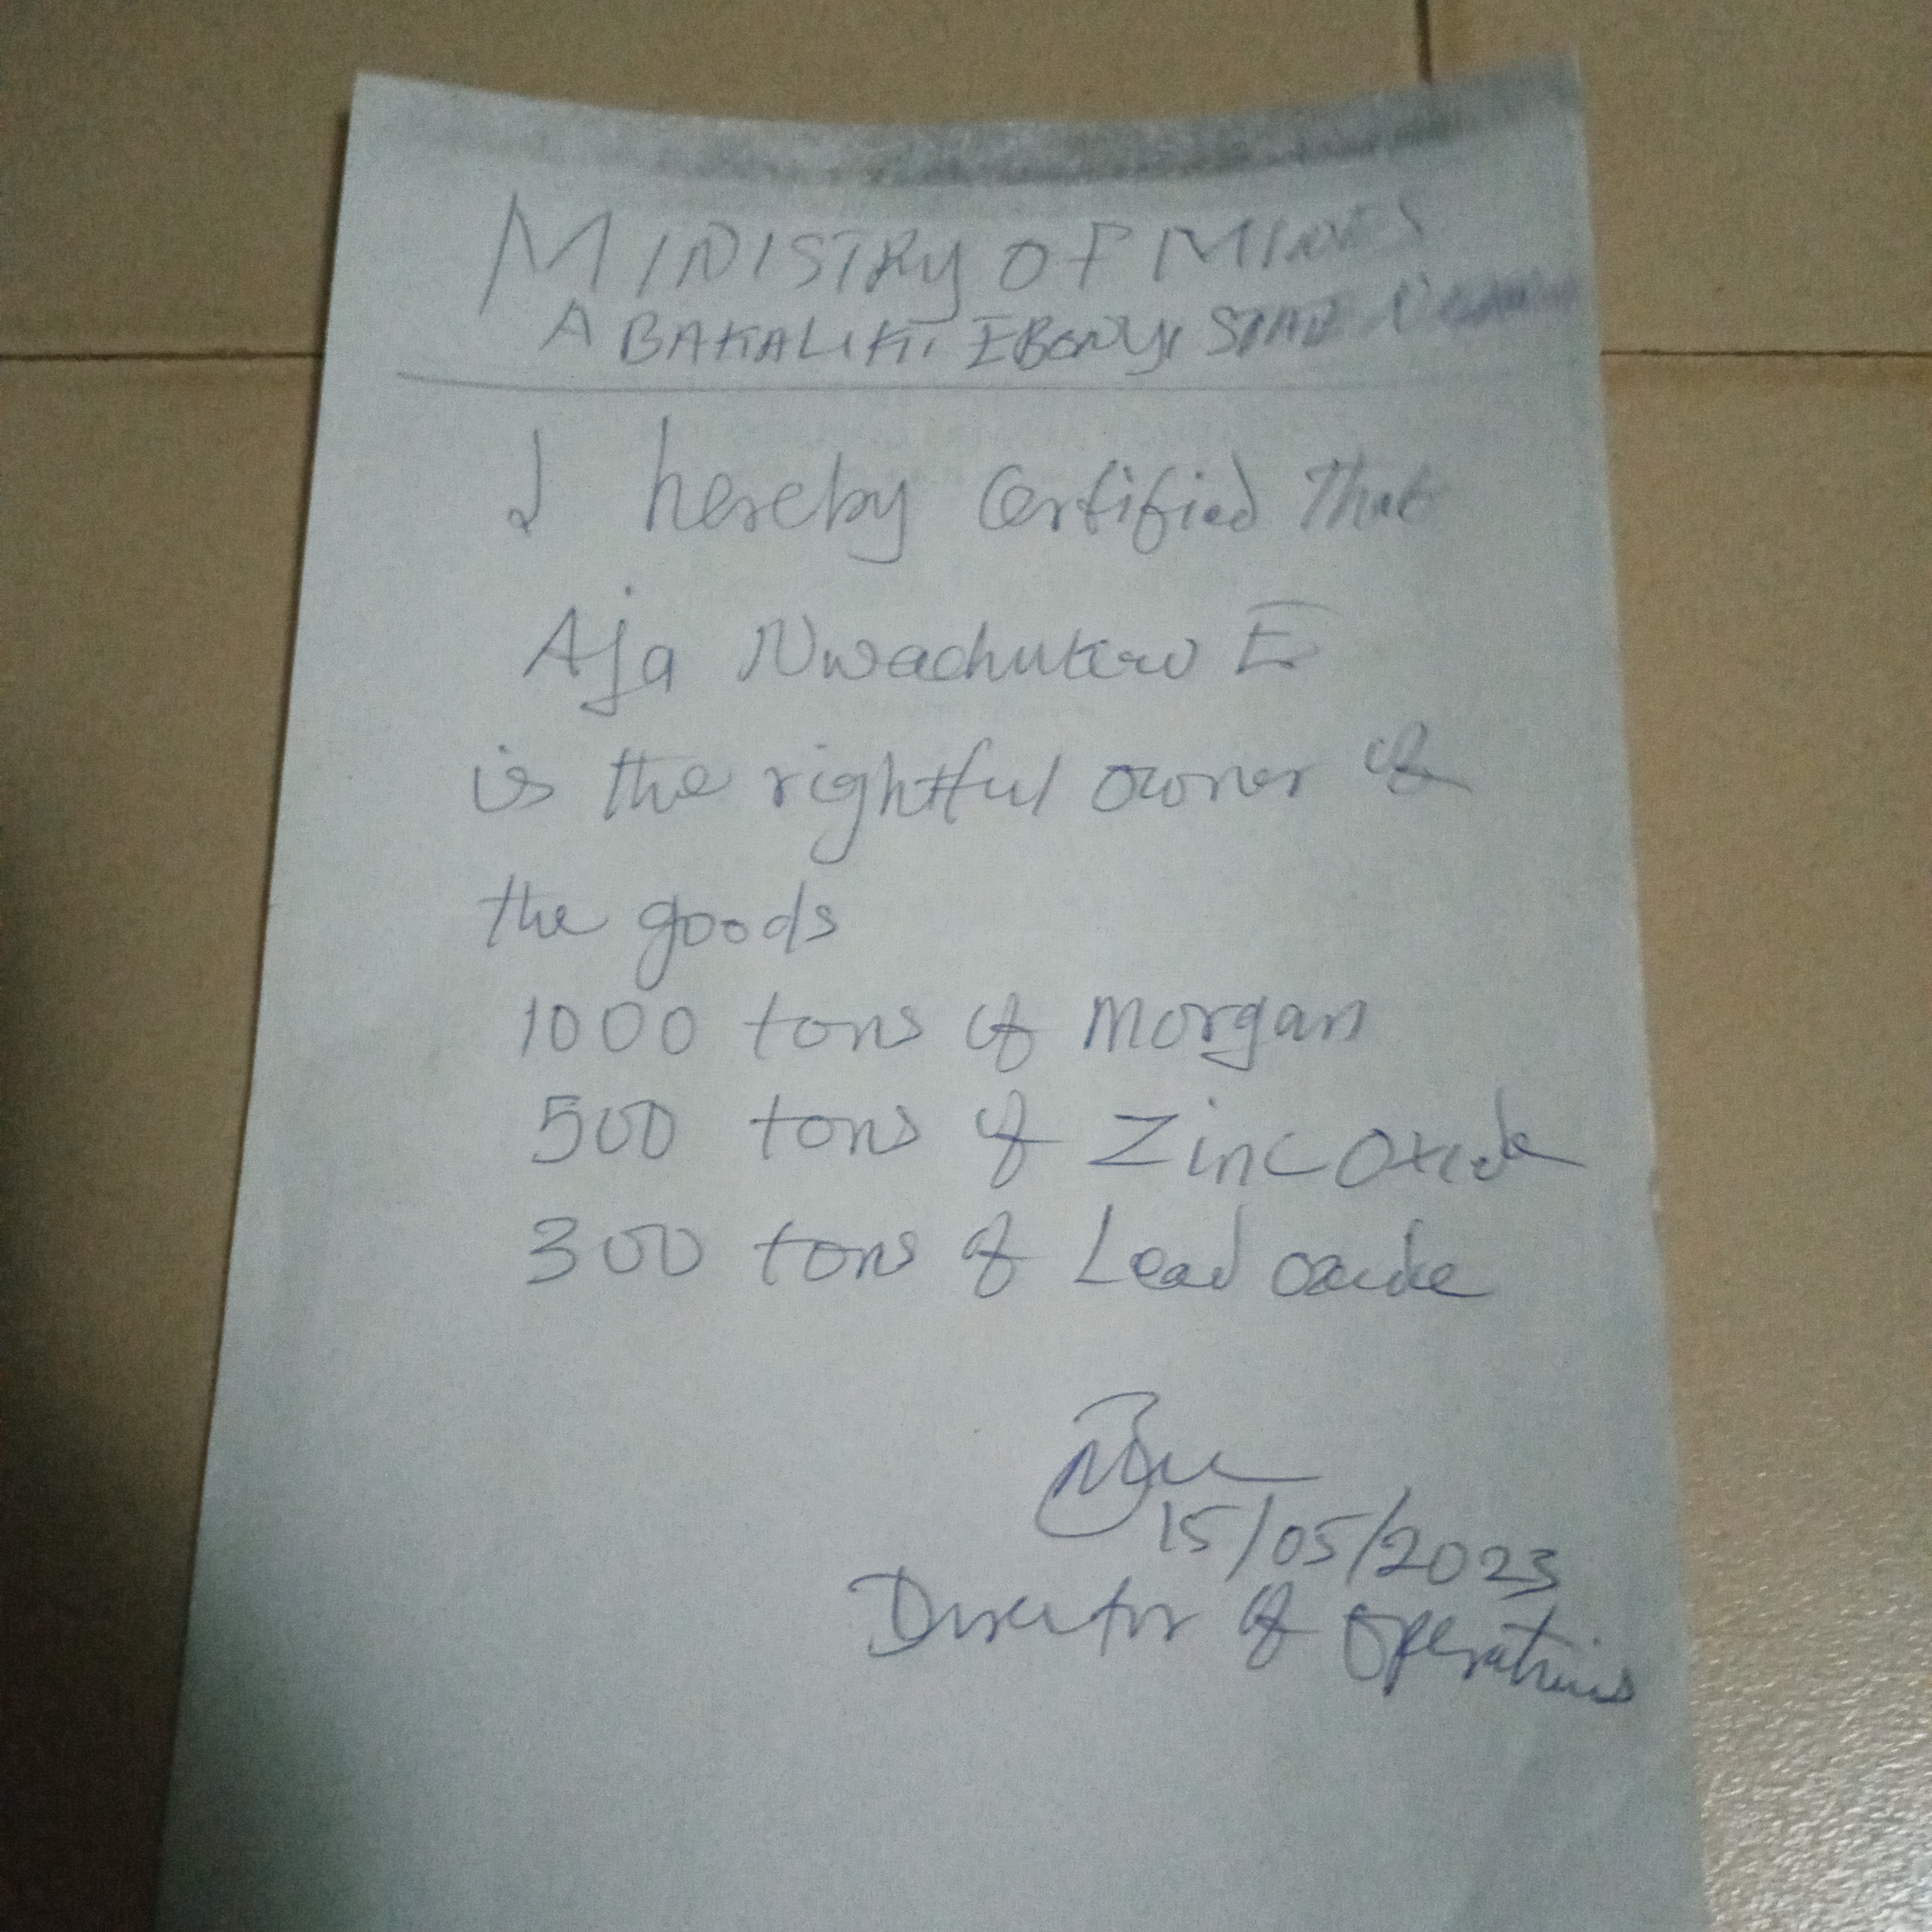 MINISTRY OF MINES
ABAKALIKI EBONYI STATE
I hereby Certified That
Aja Nwachukwu E
is the rightful owner of
the goods
1000 tons of Morgan
500 tons of Zinc Oxide
300 tons of Lead oxide
15/05/2023
Director of Operations